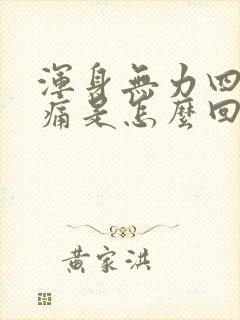 渾身無力四
痛是怎麼回
黃家洪